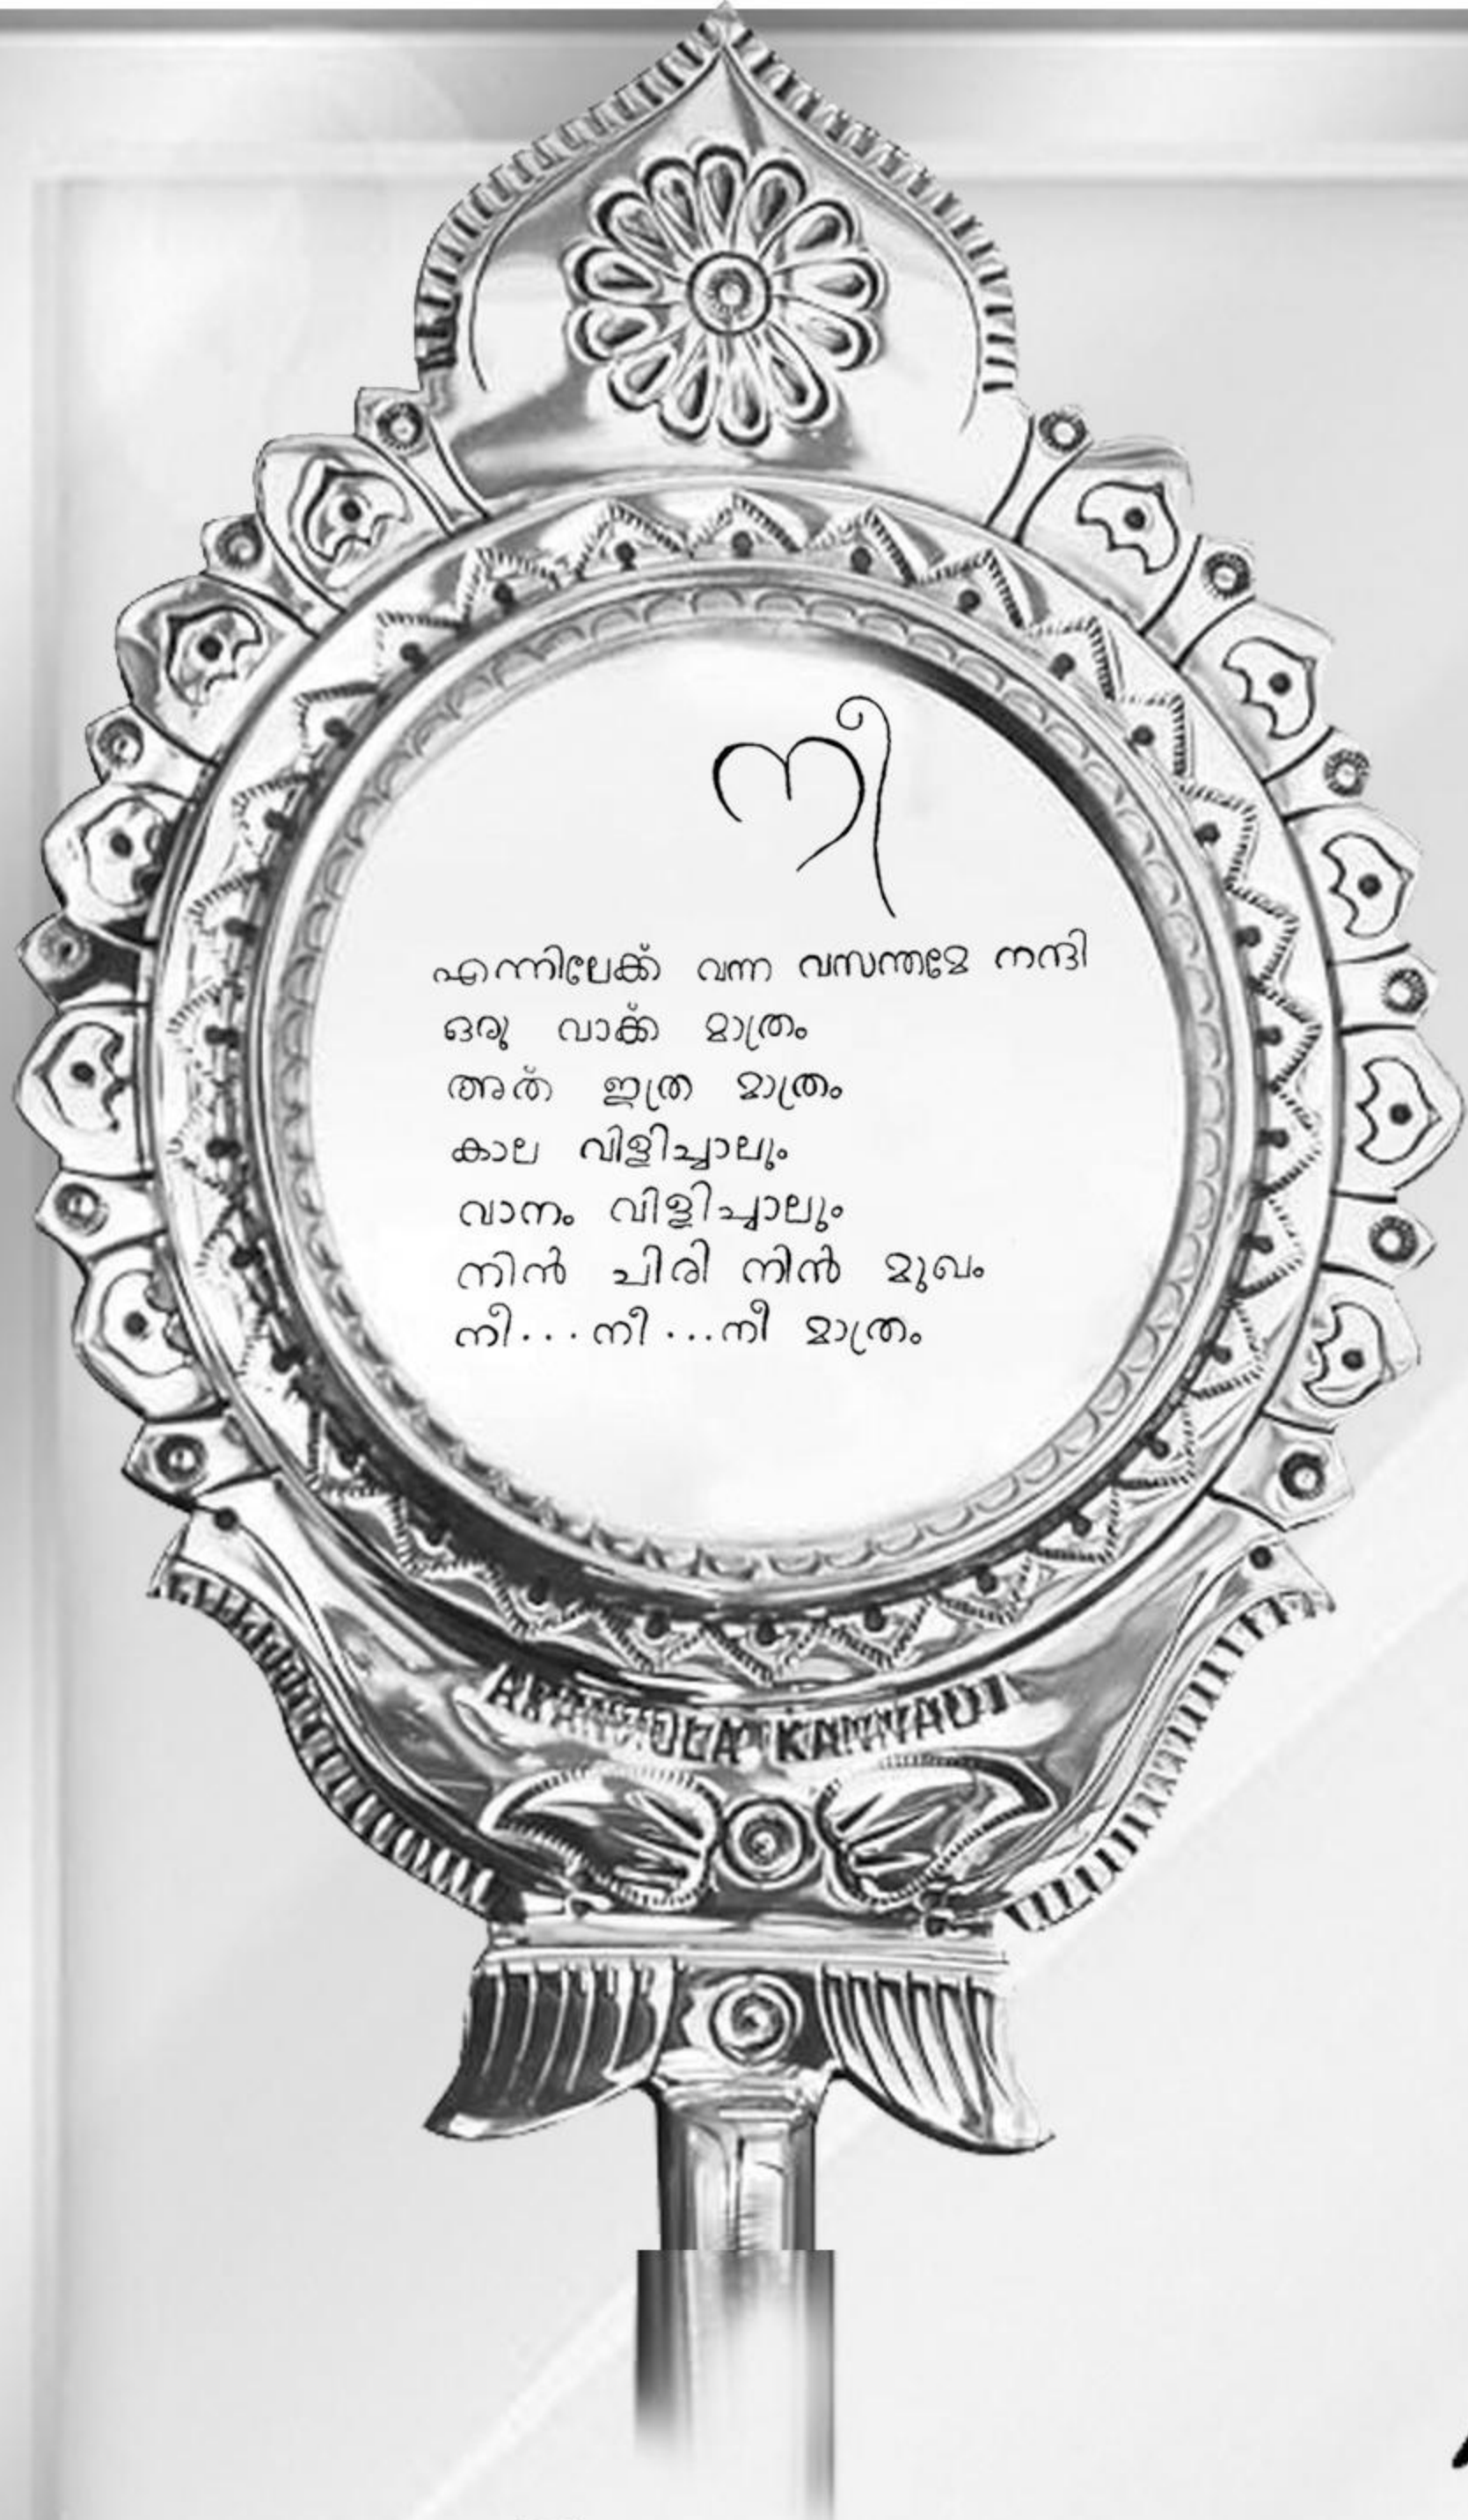 നീ
എന്നിലേക്ക് വന്ന വസന്തമേ നന്ദി
ഒരു വാക്ക് മാത്രം
അത് ഇത്ര മാത്രം
കാല വിളിച്ചാലും
വാനം വിളിച്ചാലും
നിൻ ചിരി നിൻ മുഖം
നീ...നീ...നീ മാത്രം
ARANMULA KANNADI